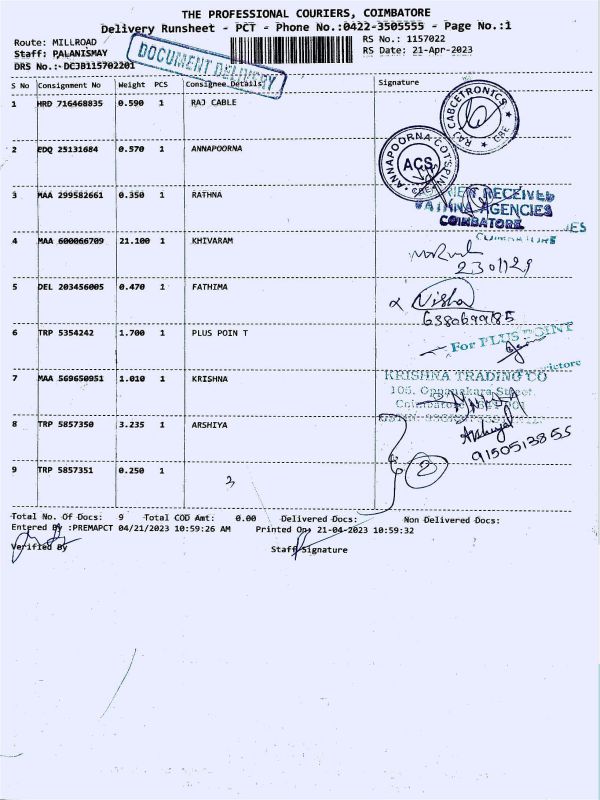 THE PROFESSIONAL COURIERS, COIMBATORE
Delivery Runsheet - PCT - Phone No.:0422-3505555 - Page No.:1
Route: MILLROAD
RS No.: 1157022
Staff: PALANISMAY
RS Date: 21-Apr-2023
DRS No.:-DCJB115702201
DOCUMENT DELIVERY
S No Consignment No Weight PCS Consignee Details Signature
1 HRD 716468835 0.590 1 RAJ CABLE
RAJ CABCETRONICS CBE
2 EDQ 25131684 0.570 1 ANNAPOORNA
ANNAPOORNA COTSPIN
ACS
3 MAA 299582661 0.350 1 RATHNA
RECEIVED
AGENCIES
COIMBATORE
4 MAA 600066709 21.100 1 KHIVARAM
5 DEL 203456005 0.470 1 FATHIMA
Nisha
6380699185
6 TRP 5354242 1.700 1 PLUS POIN T
For PLUS POINT
7 MAA 569650951 1.010 1 KRISHNA
KRISHNA TRADING CO
105, Oppanakara Street,
8 TRP 5857350 3.235 1 ARSHIYA
9150513855
9 TRP 5857351 0.250 1
3
2
Total No. Of Docs: 9 Total COD Amt: 0.00 Delivered Docs: Non Delivered Docs:
Entered By :PREMAPCT 04/21/2023 10:59:26 AM Printed On: 21-04-2023 10:59:32
Verified By
Staff Signature